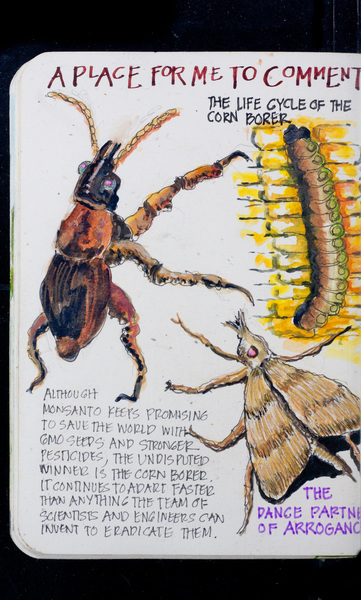 A PLACE FOR ME TO COMMENT
THE LIFE CYCLE OF THE
CORN BORER
ALTHOUGH
MONSANTO KEEPS PROMISING
TO SAVE THE WORLD WITH
GMO SEEDS AND STRONGER
PESTICIDES, THE UNDISPUTED
WINNER IS THE CORN BORER.
IT CONTINUES TO ADAPT FASTER
THAN ANYTHING THE TEAM OF
SCIENTISTS AND ENGINEERS CAN
INVENT TO ERADICATE THEM.
THE
DANCE PARTNE
OF ARROGANC